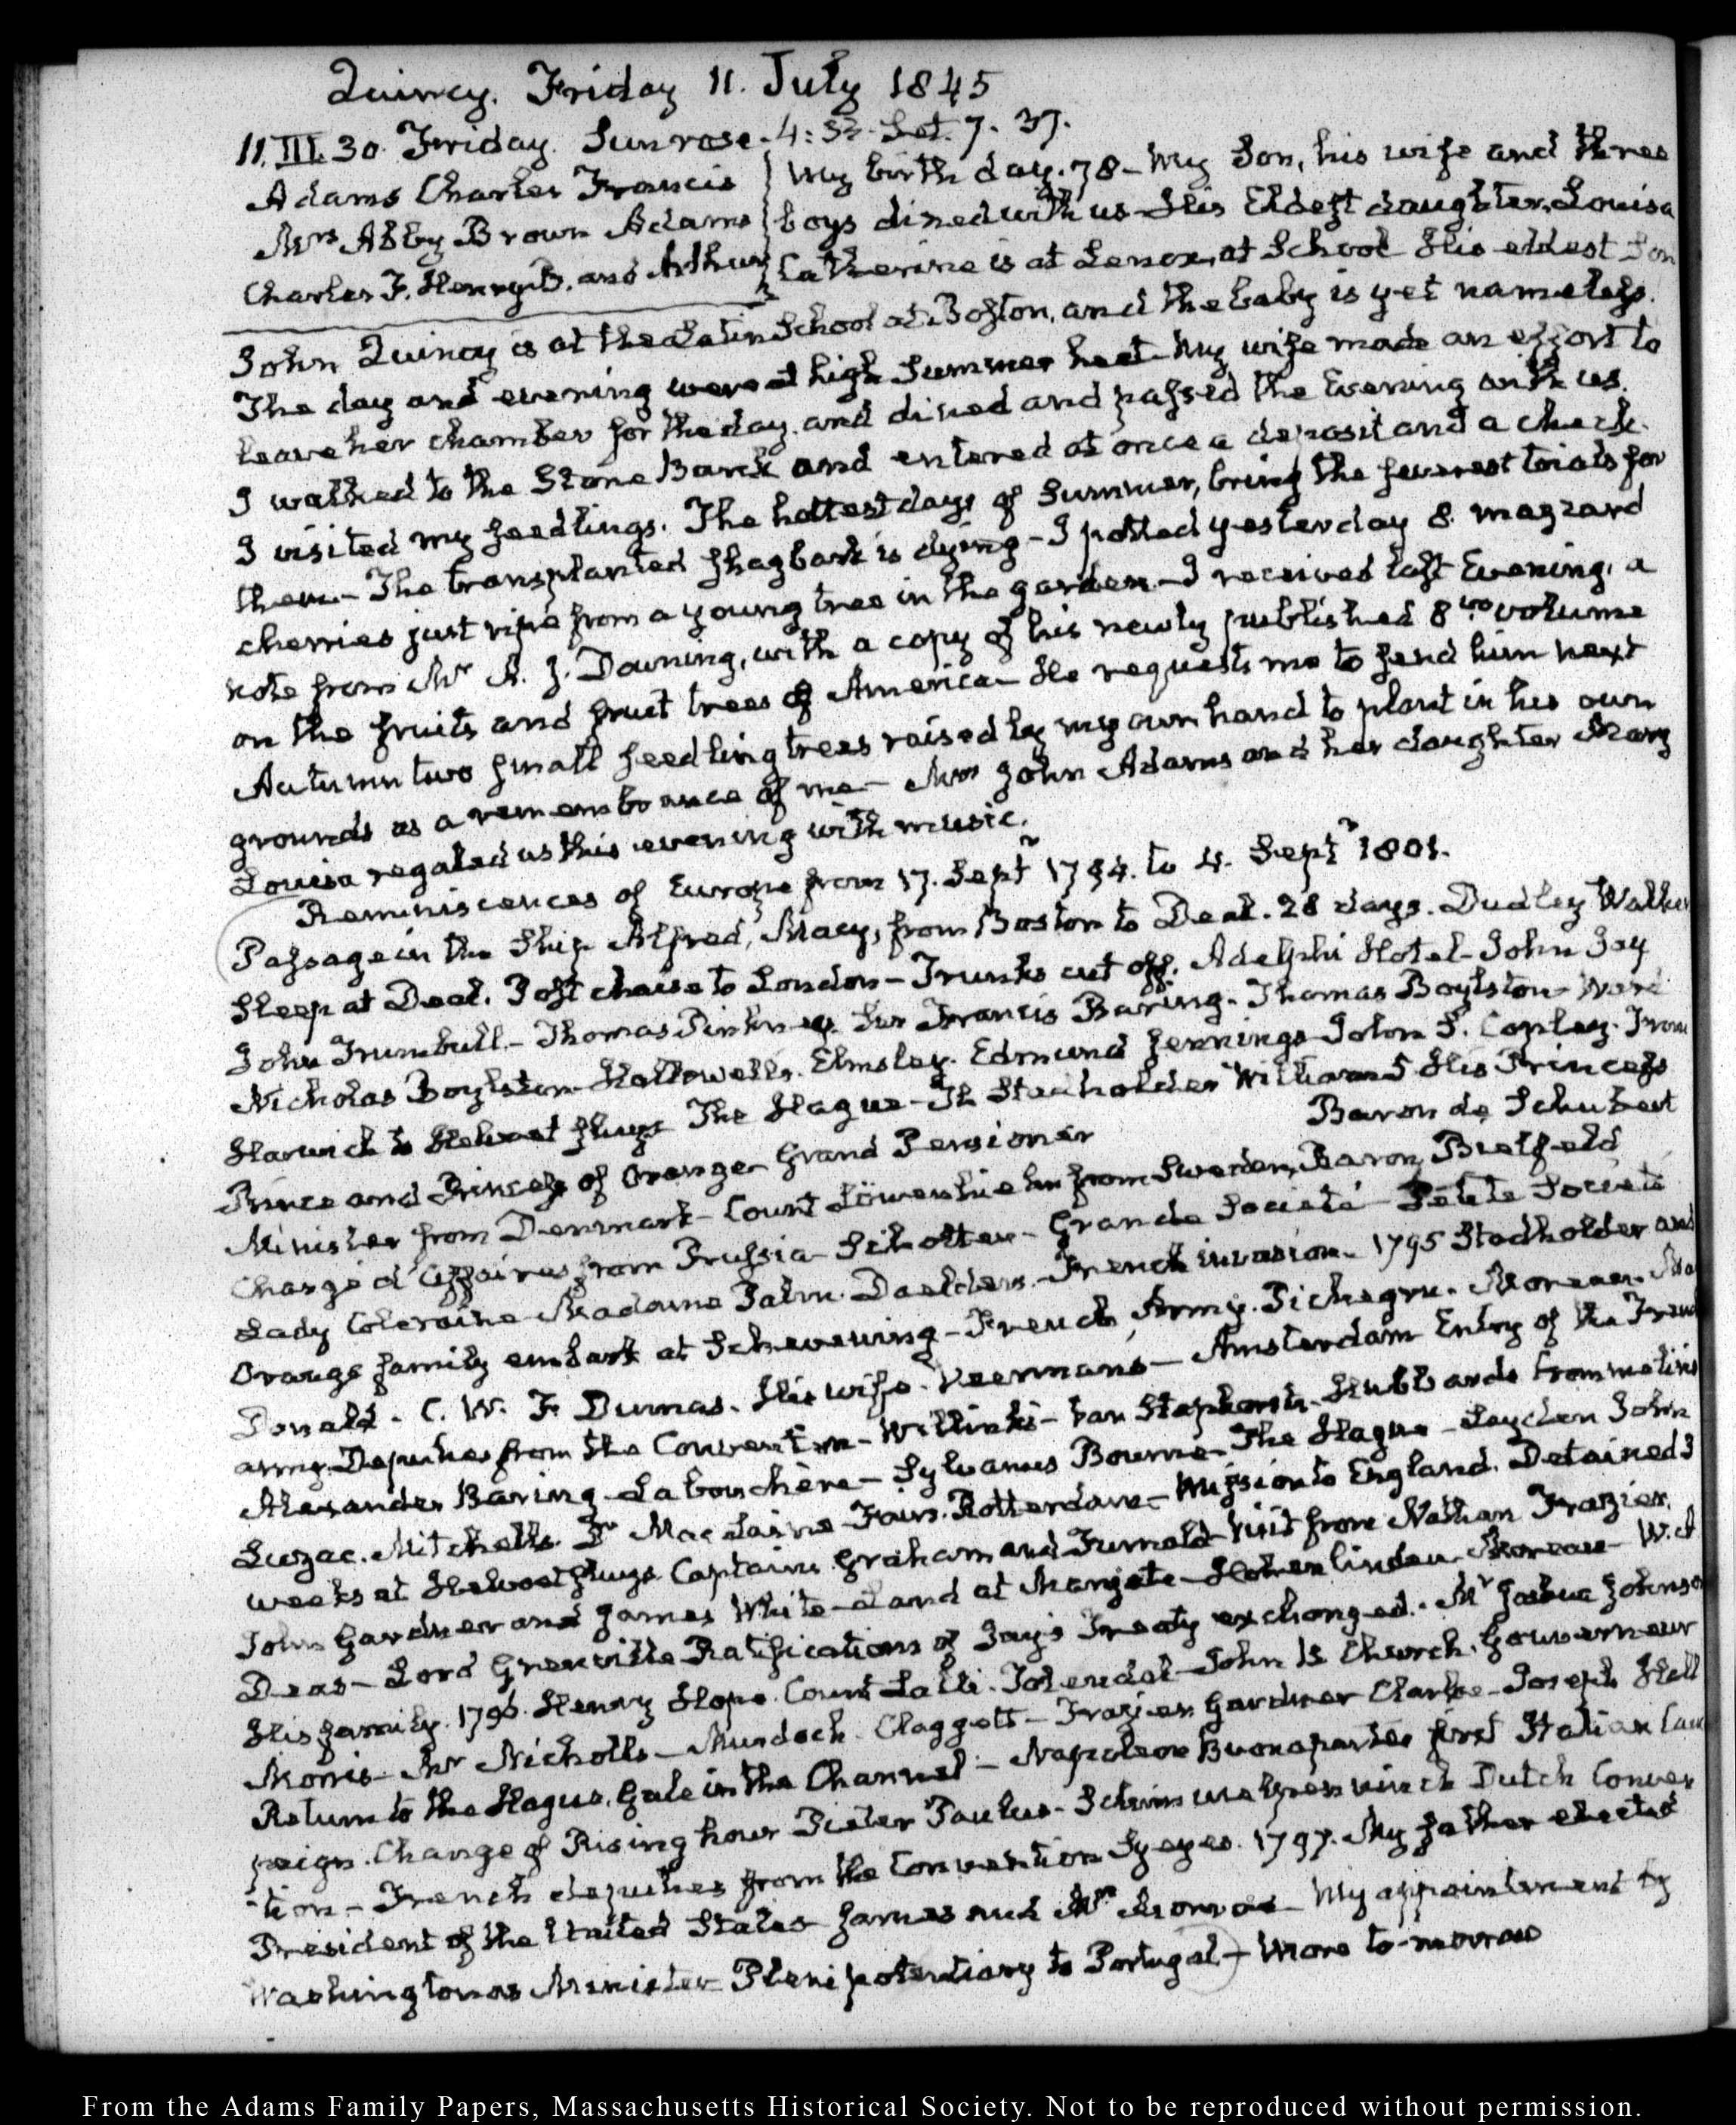 Quincy. Friday 11. July 1845
11. III. 30. Friday. Sun rose. 4:33. Set. 7. 37.
Adams Charles Francis
Mrs Abby Brown Adams
Charles F. Henry B. and Arthur
My birth day. 78 – My Son, his wife and three
boys dined with us – His Eldest daughter, Louisa
Catherine is at Lenox, at School His eldest Son
John Quincy is at the Latin School at Boston, and the baby is yet nameless.
The day and evening were at high Summer heat – My wife made an effort to
leave her chamber for the day, and dined and passed the Evening with us.
I walked to the Stone Bank and entered at once a deposit and a check.
I visited my seedlings. The hottest days of Summer, bring the severest trials for
them – The transplanted shagbark is dying – I potted yesterday 8. mazzard
cherries just ripe from a young tree in the garden – I received last Evening, a
note from Mr A. J. Downing, with a copy of his newly published 8vo volume
on the fruits and fruit trees of America – He requests me to send him next
Autumn two small seedling trees raised by my own hand to plant in his own
grounds as a remembrance of me – Mrs John Adams and her daughter Mary
Louisa regaled us this evening with music.
Reminiscences of Europe from 17. Septr 1794. to 4. Septr 1801.
Passage in the Ship Alfred, Macy, from Boston to Deal. 28 days. Dudley Walker
Sleep at Deal. Post chaise to London – Trunks cut off. Adelphi Hotel – John Jay
John Trumbull – Thomas Pinkney. Sir Francis Baring – Thomas Boylston – Ward
Nicholas Boylston – Hallowells. Elmsley. Edmund Jennings – John S. Copley. From
Harwich to Helvoet sluys The Hague – The Stadholder William 5 His Princess
Prince and Princess of Orange – Grand Pensioner Baron de Schubart
Minister from Denmark – Count Löwenhielm from Sweden, Baron Bielfeld
Chargé d'Affaires from Prussia – Scholten – Grande Societé – Petite Societé
Lady Coleraine – Madame Palm. Daelders. – French invasion – 1795 Stadholder and
Orange family embark at Schevening – French Army. Pichegru. Moreau. Mac
Donald – C. W. F. Dumas. His wife. Veermans – Amsterdam Entry of the French
army. Deputies from the Convention – Willinks – Van Staphorst – Hubbards
Alexander Baring – Labouchère – Sylvanus Bourne – The Hague – Leyden John
Luzac. Mitchells. Dr Maclaine – Rotterdam – Mission to England. Detained 3
weeks at Helvoetsluys Captains Graham and Furnald – Visit from Nathan Frazier,
John Gardner and James White – Land at Margate – Hohenlinden Moreau – W. A
Deas – Lord Grenville Ratifications of Jay's Treaty exchanged. – Mr Joshua Johnson
His family. 1796. Henry Hope. Count Lalli. Tolendal – John B Church. Gouverneur
Morris – Mr Nicholls – Murdoch. Claggett – Frazier Gardner Clarke – Joseph Hall
Return to the Hague. Gale in the Channel – Napoleon Buonaparte's first Italian Cam
paign. Change of Rising hour Pieter Paulus – Schimmelpenninck Dutch Conven
tion – French deputies from the Convention Syeyes. 1797. My father elected
President of the United States James and Mrs Monroe – My appointment by
Washington as Minister Plenipotentiary to Portugal – More to-morrow
From the Adams Family Papers, Massachusetts Historical Society. Not to be reproduced without permission.